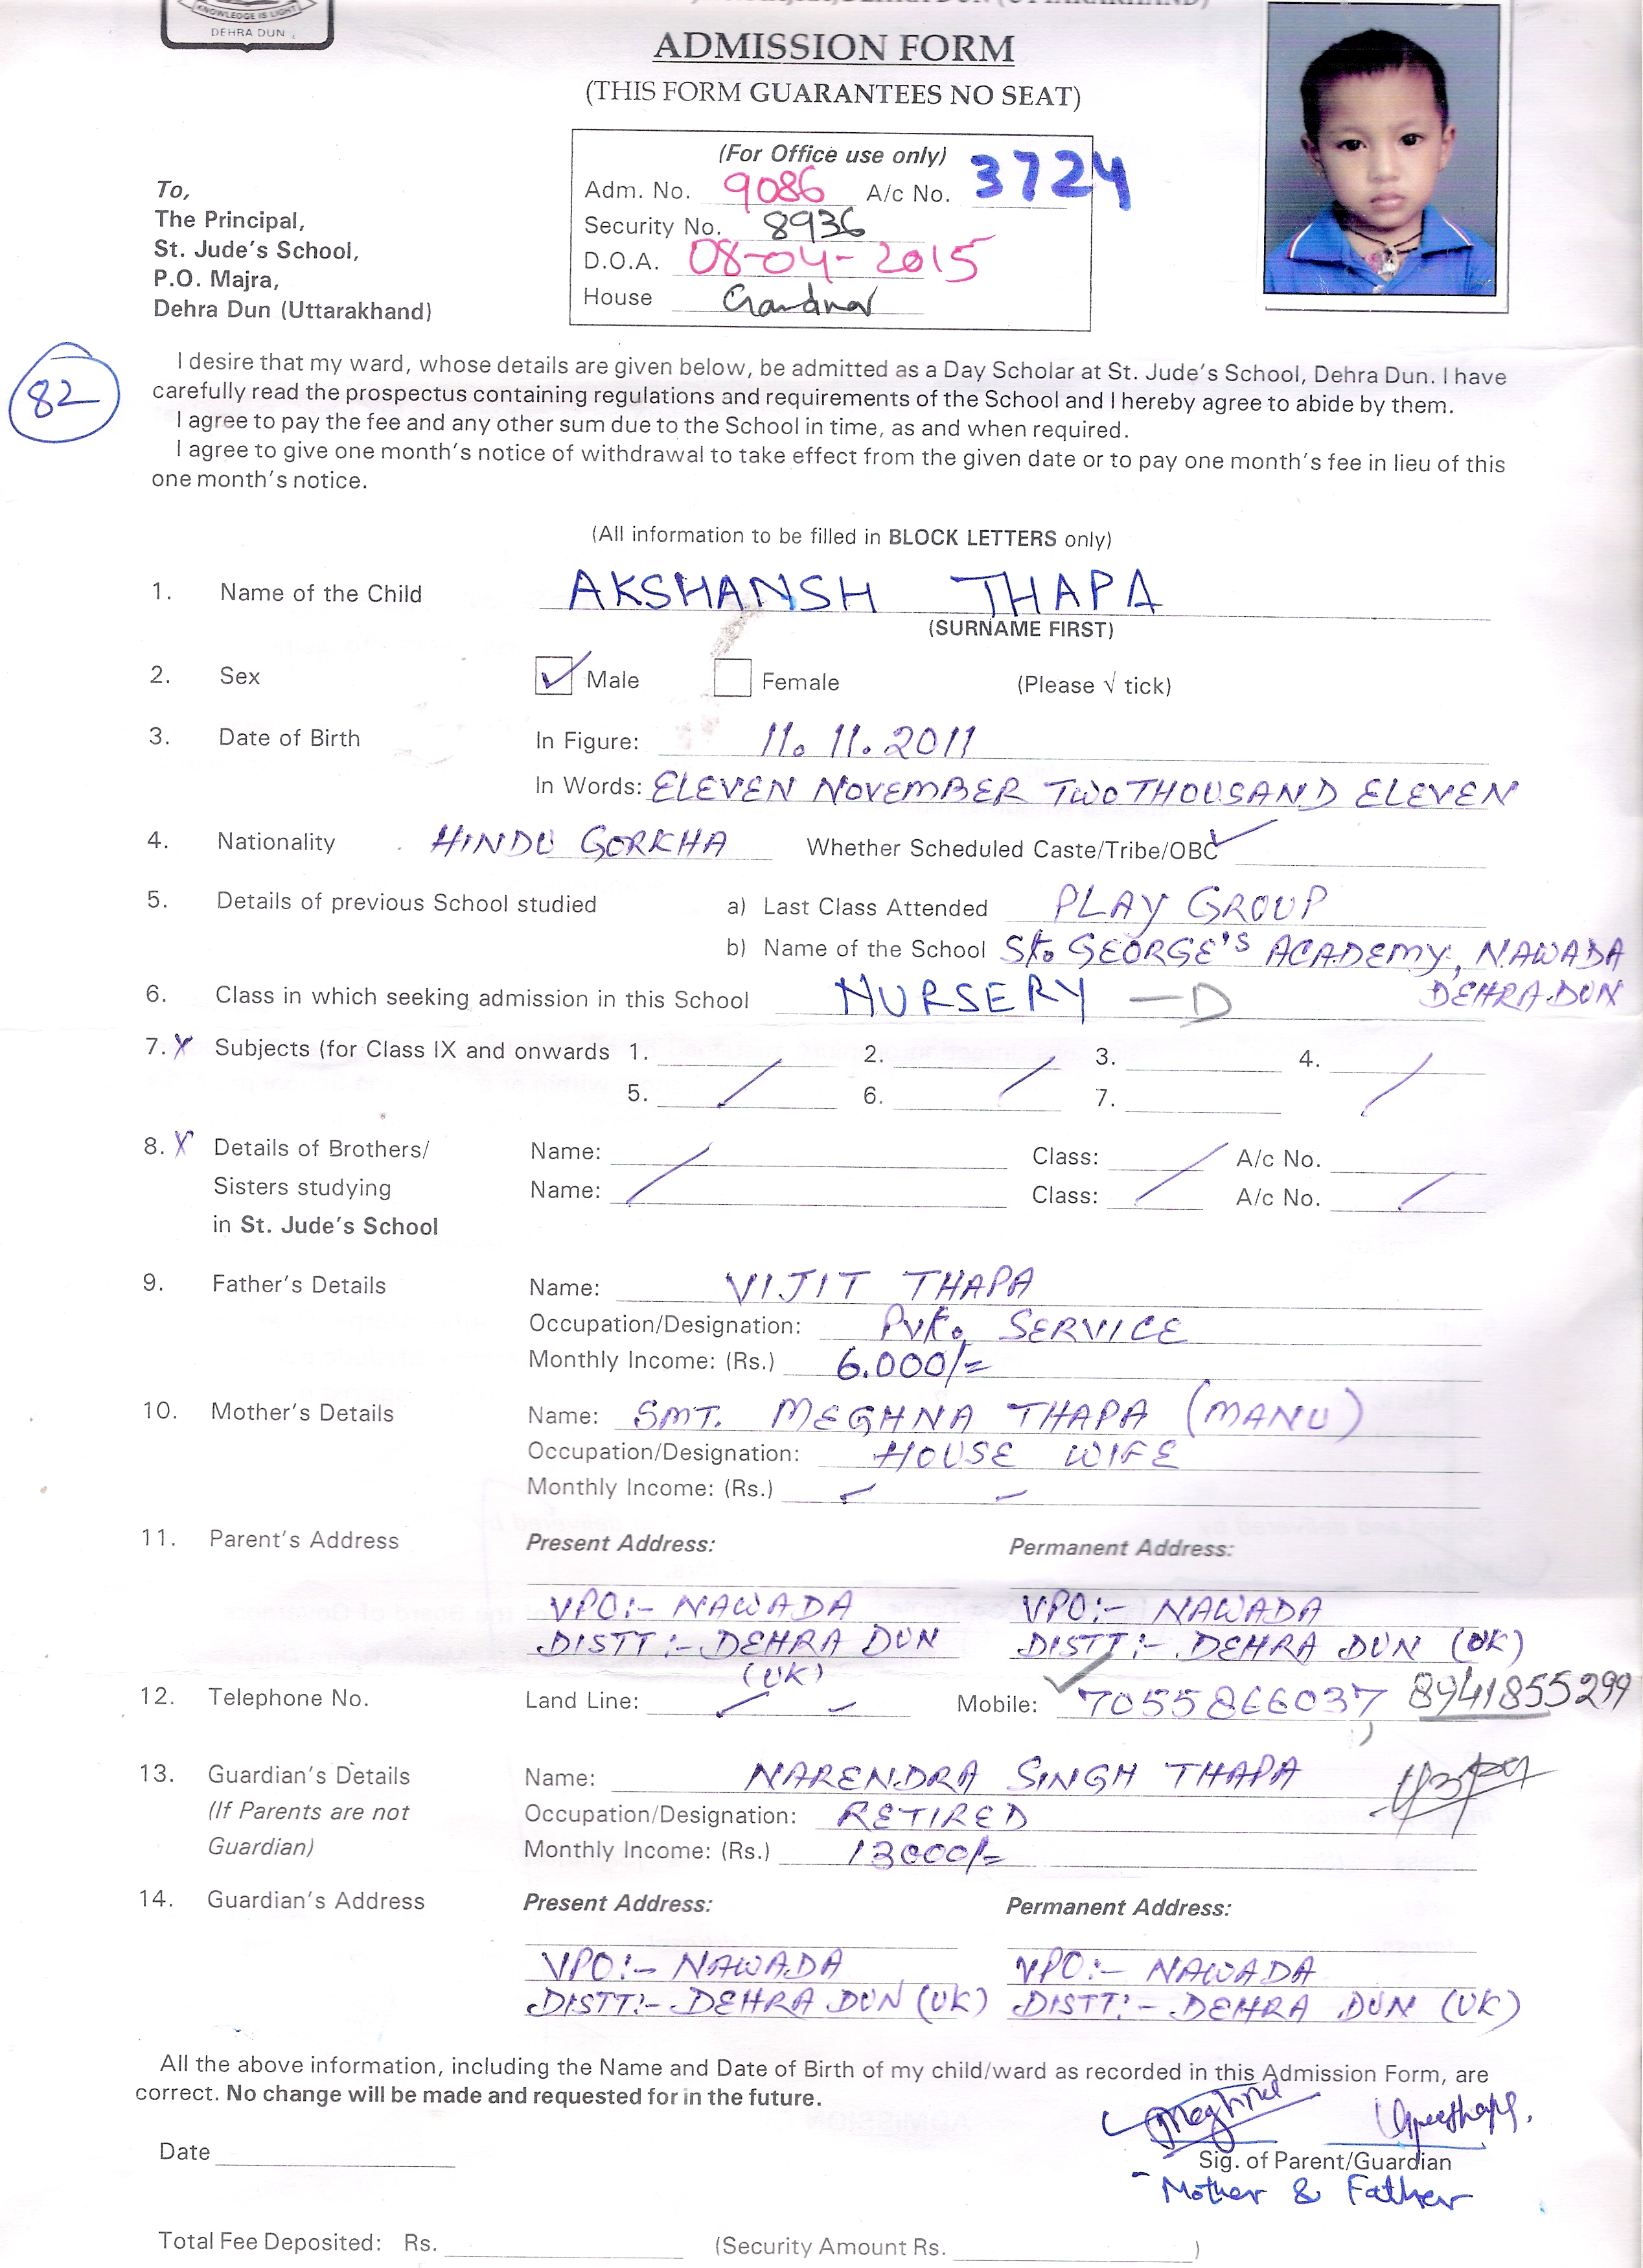 KNOWLEDGE IS LIGHT
DEHRA DUN
ADMISSION FORM
(THIS FORM GUARANTEES NO SEAT)
(For Office use only)
Adm. No. 9086 A/c No. 3724
Security No. 8936
D.O.A. 08-04-2015
House
To,
The Principal,
St. Jude's School,
P.O. Majra,
Dehra Dun (Uttarakhand)
82
I desire that my ward, whose details are given below, be admitted as a Day Scholar at St. Jude's School, Dehra Dun. I have
carefully read the prospectus containing regulations and requirements of the School and I hereby agree to abide by them.
I agree to pay the fee and any other sum due to the School in time, as and when required.
I agree to give one month's notice of withdrawal to take effect from the given date or to pay one month's fee in lieu of this
one month's notice.
(All information to be filled in BLOCK LETTERS only)
1. Name of the Child AKSHANSH THAPA
(SURNAME FIRST)
2. Sex ✓ Male Female (Please √ tick)
3. Date of Birth In Figure: 11. 11. 2011
In Words: ELEVEN NOVEMBER TWO THOUSAND ELEVEN
4. Nationality HINDU GORKHA Whether Scheduled Caste/Tribe/OBC ✓
5. Details of previous School studied a) Last Class Attended PLAY GROUP
b) Name of the School St. GEORGE'S ACADEMY, NAWADA
DEHRADUN
6. Class in which seeking admission in this School NURSERY — D
7. X Subjects (for Class IX and onwards 1. 2. 3. 4.
5. 6. 7.
8. X Details of Brothers/ Name: Class: A/c No.
Sisters studying Name: Class: A/c No.
in St. Jude's School
9. Father's Details Name: VIJIT THAPA
Occupation/Designation: Pvt. SERVICE
Monthly Income: (Rs.) 6.000/=
10. Mother's Details Name: SMT. MEGHNA THAPA (MANU)
Occupation/Designation: HOUSE WIFE
Monthly Income: (Rs.) - -
11. Parent's Address Present Address: Permanent Address:
VPO:- NAWADA VPO:- NAWADA
DISTT:- DEHRA DUN DISTT:- DEHRA DUN (UK)
(UK)
12. Telephone No. Land Line: - - Mobile: 7055866037, 8941855299
13. Guardian's Details Name: NARENDRA SINGH THAPA
(If Parents are not Occupation/Designation: RETIRED
Guardian) Monthly Income: (Rs.) 13000/=
14. Guardian's Address Present Address: Permanent Address:
VPO:- NAWADA VPO:- NAWADA
DISTT:- DEHRA DUN (UK) DISTT:- DEHRA DUN (UK)
All the above information, including the Name and Date of Birth of my child/ward as recorded in this Admission Form, are
correct. No change will be made and requested for in the future.
Meghna
Date Sig. of Parent/Guardian
- Mother & Father
Total Fee Deposited: Rs. (Security Amount Rs. )